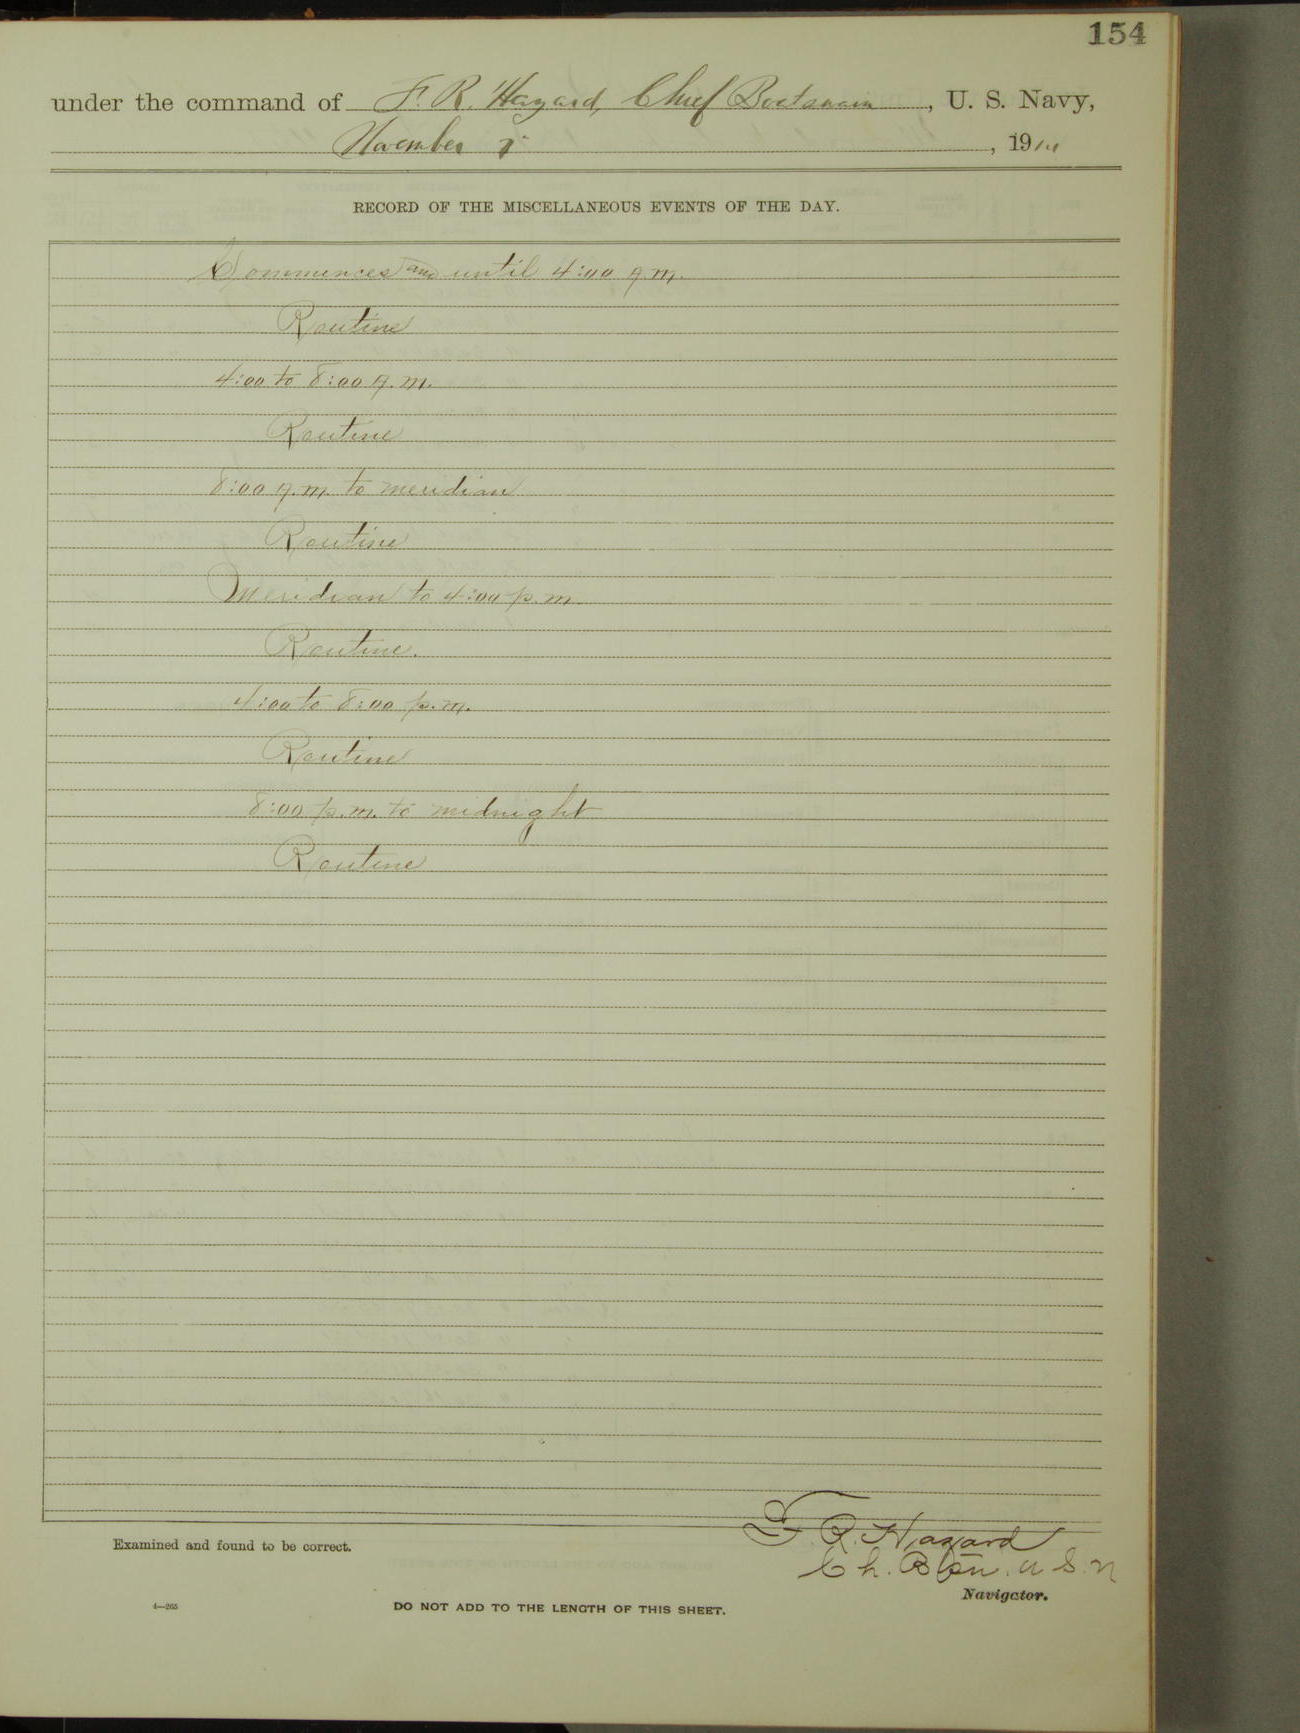 154
under the command of F. R. Hazard, Chief Boatswain, U. S. Navy,
November , 19
RECORD OF THE MISCELLANEOUS EVENTS OF THE DAY.
Commences and until 4:00 a.m.
Routine
4:00 to 8:00 a.m.
Routine
8:00 a.m. to meridian
Routine
Meridian to 4:00 p.m.
Routine.
4:00 to 8:00 p.m.
Routine
8:00 p.m. to midnight
Routine
F. R. Hazard
Examined and found to be correct.
Ch. Btsn. U.S.N
Navigator.
4—265
DO NOT ADD TO THE LENGTH OF THIS SHEET.